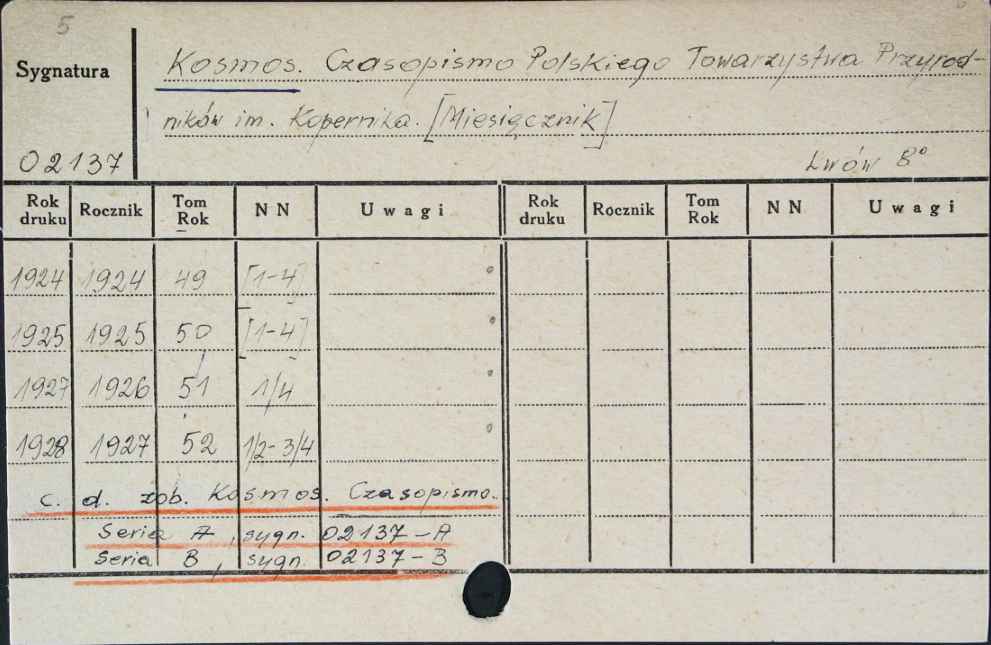 5
Sygnatura
Kosmos. Czasopismo Polskiego Towarzystwa Przyrod-
ników im. Kopernika. [Miesięcznik]
02137
Lwów 8°
Rok druku Rocznik Tom Rok NN Uwagi Rok druku Rocznik Tom Rok NN Uwagi
1924 1924 49 [1-4]
1925 1925 50 [1-4]
1927 1926 51 1/4
1928 1927 52 1/2-3/4
c. d. zob. Kosmos. Czasopismo.
Seria A, sygn. 02137-A
Seria B, sygn. 02137-B